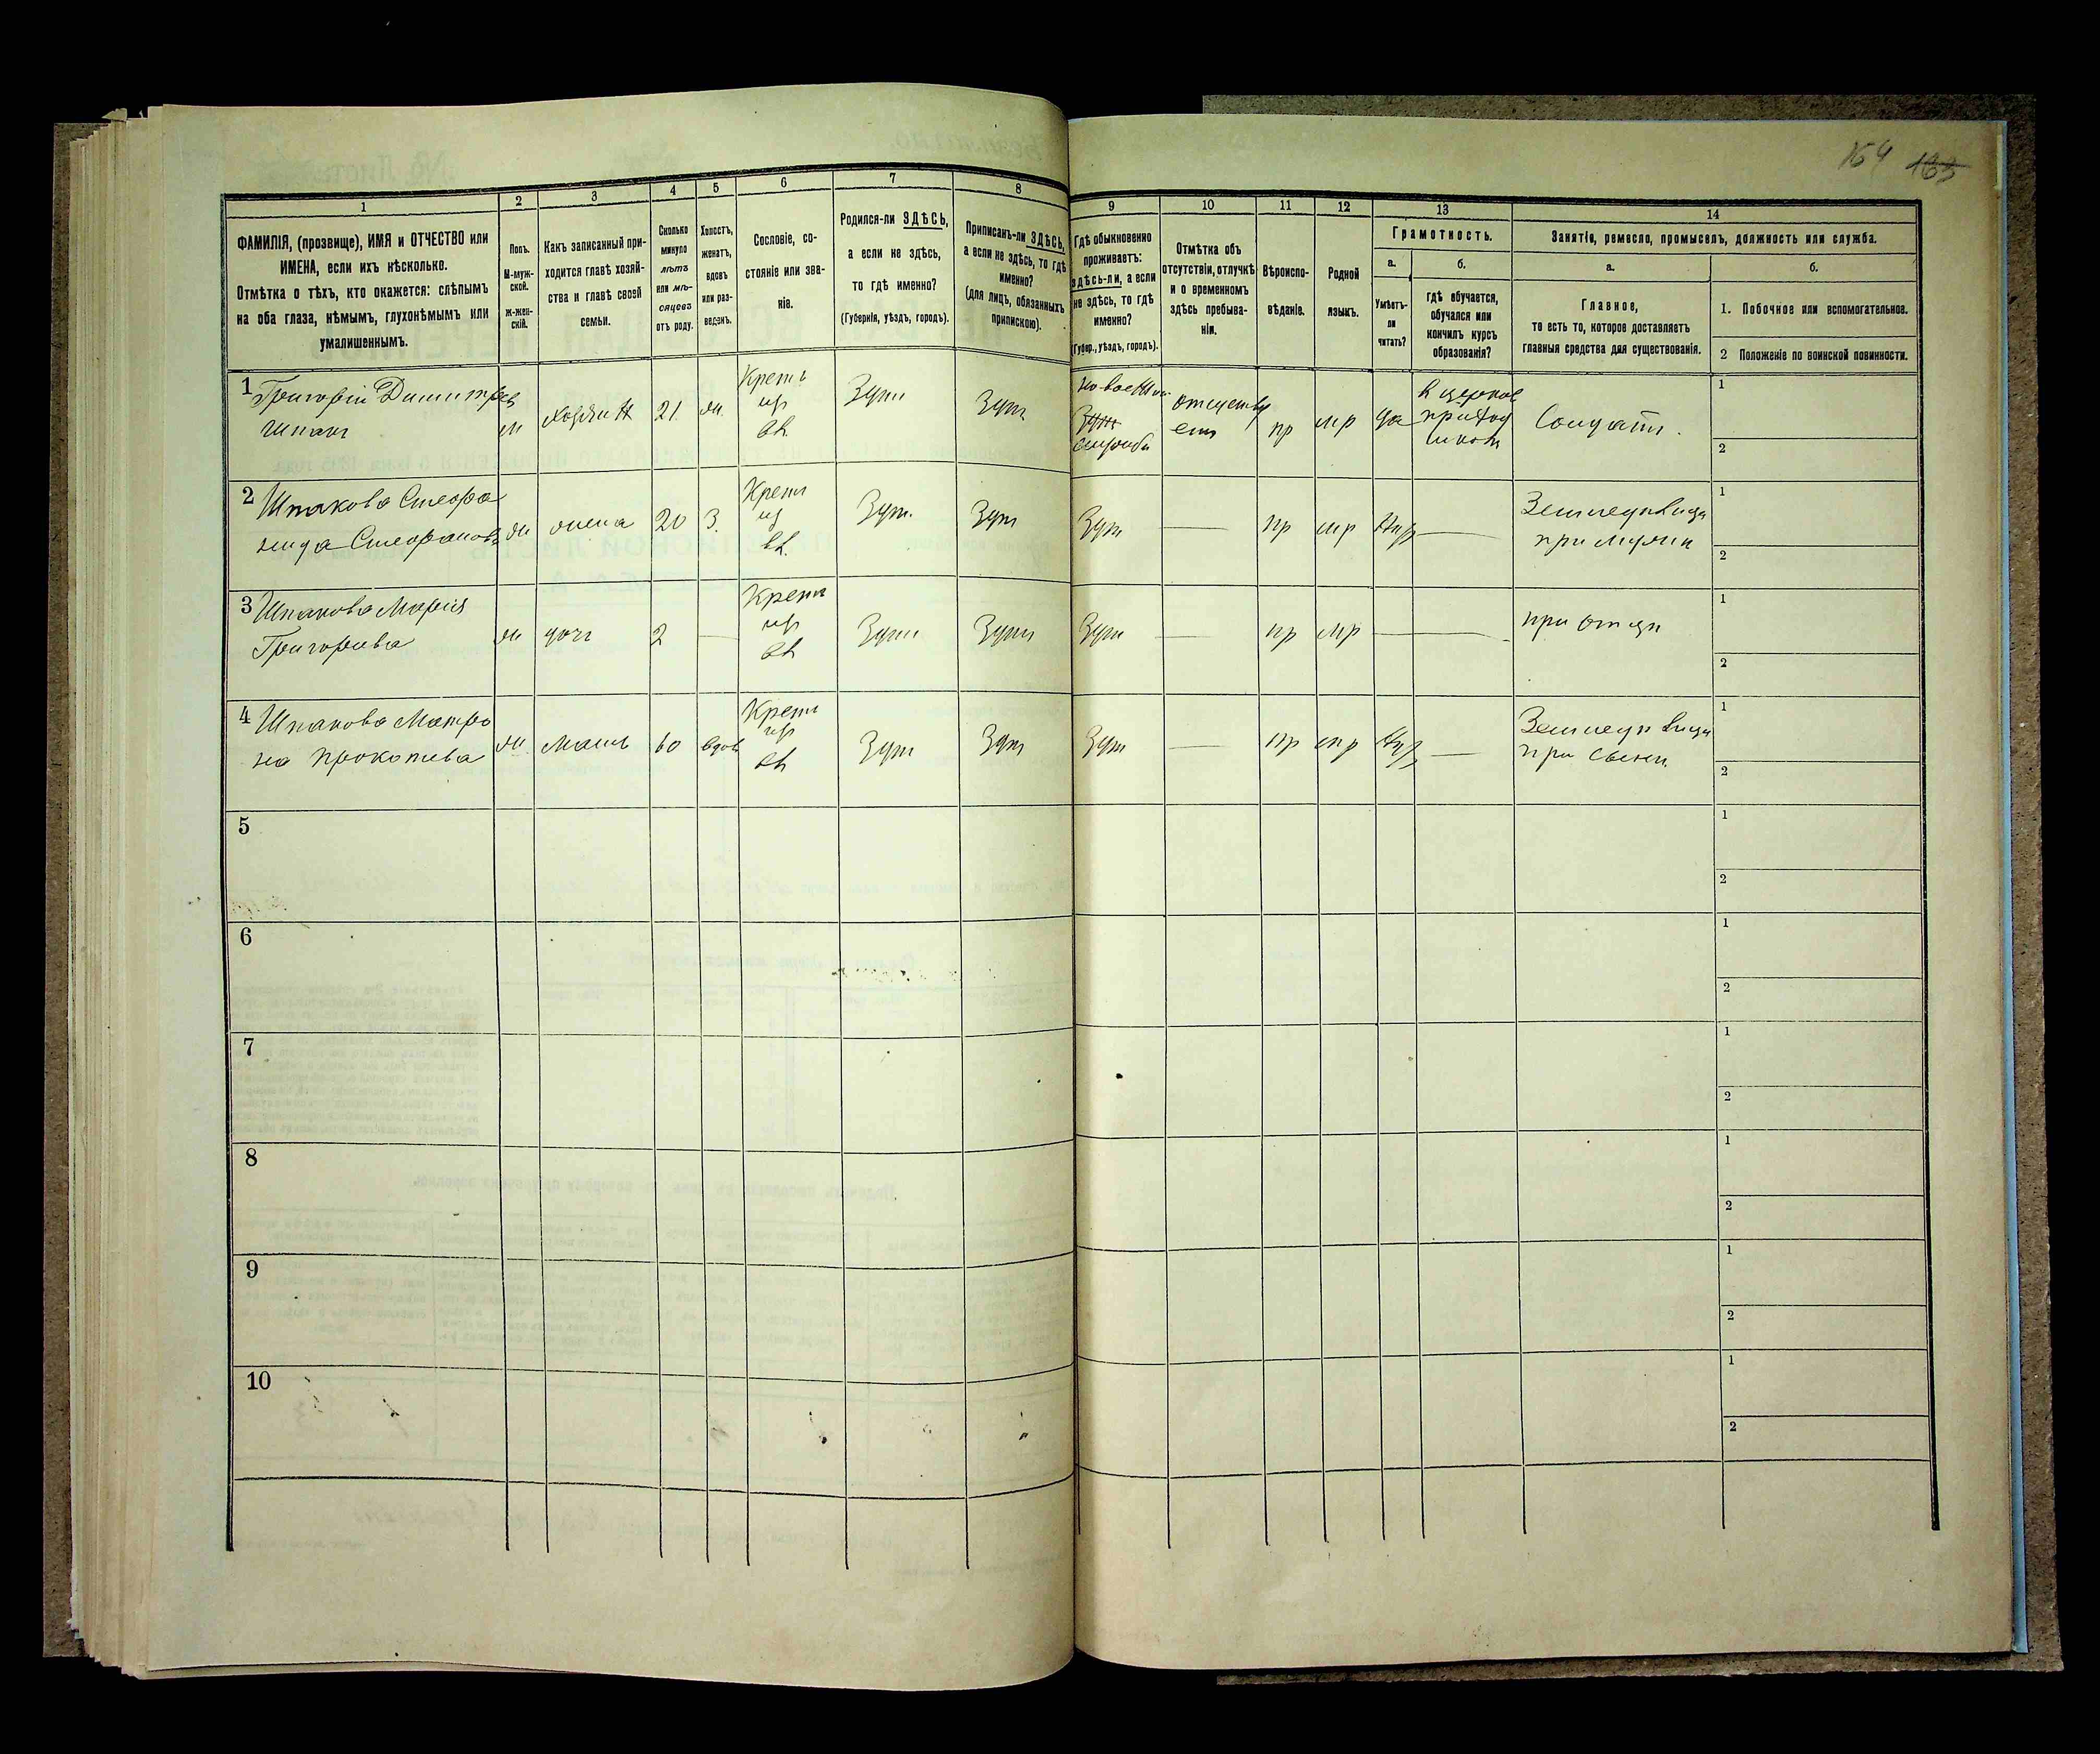 164 163
1 2 3 4 5 6 7 8 9 10 11 12 13 14
ФАМИЛІЯ, (прозвище), ИМЯ и ОТЧЕСТВО или
ИМЕНА, если ихъ нѣсколько.
Отмѣтка о тѣхъ, кто окажется: слѣпымъ
на оба глаза, нѣмымъ, глухонѣмымъ или
умалишеннымъ.
Полъ.
М-муж-
ской.
Ж-жен-
скій.
Какъ записанный при-
ходится главѣ хозяй-
ства и главѣ своей
семьи.
Сколько
минуло
лѣтъ
или мѣ-
сяцевъ
отъ роду.
Холостъ,
женатъ,
вдовъ
или раз-
веденъ.
Сословіе, со-
стояніе или зва-
ніе.
Родился-ли ЗДѢСЬ,
а если не здѣсь,
то гдѣ именно?
(Губернія, уѣздъ, городъ).
Приписанъ-ли ЗДѢСЬ,
а если не здѣсь, то гдѣ
именно?
(для лицъ, обязанныхъ
припискою).
Гдѣ обыкновенно
проживаетъ:
здѣсь-ли, а если
не здѣсь, то гдѣ
именно?
(Губер., уѣздъ, городъ).
Отмѣтка объ
отсутствіи, отлучкѣ
и о временномъ
здѣсь пребыва-
ніи.
Вѣроиспо-
вѣданіе.
Родной
языкъ.
Грамотность.
а.
Умѣетъ-
ли
читать?
б.
Гдѣ обучается,
обучался или
кончилъ курсъ
образованія?
Занятіе, ремесло, промыселъ, должность или служба.
а.
Главное,
то есть то, которое доставляетъ
главныя средства для существованія.
б.
1. Побочное или вспомогательное.
2 Положеніе по воинской повинности.
1 Григорій Димитрев
Шпак
м
хозяин
21
ж.
Крест
из
вл
Здт
Здт
Здт
службы
пр
мр
да
Солдатъ.
1
2
2 Шпакова Стефа
нида Стефанов
ж
жена
20
З.
Крест
из
вл.
Здт.
Здт
Здт
—
пр
мр
—
при мужи
1
2
3 Шпакова Марія
Григорева
ж
доч
2
—
Крест
из
вл
Здт
Здт
Здт
—
пр
мр
—
при отци
1
2
4 Шпакова Матро
на Прокопива
ж
мать
60
вдов
Крест
из
вл
Здт
Здт
Здт
—
пр
мр
—
при сыни
1
2
5
1
2
6
1
2
7
1
2
8
1
2
9
1
2
10
1
2